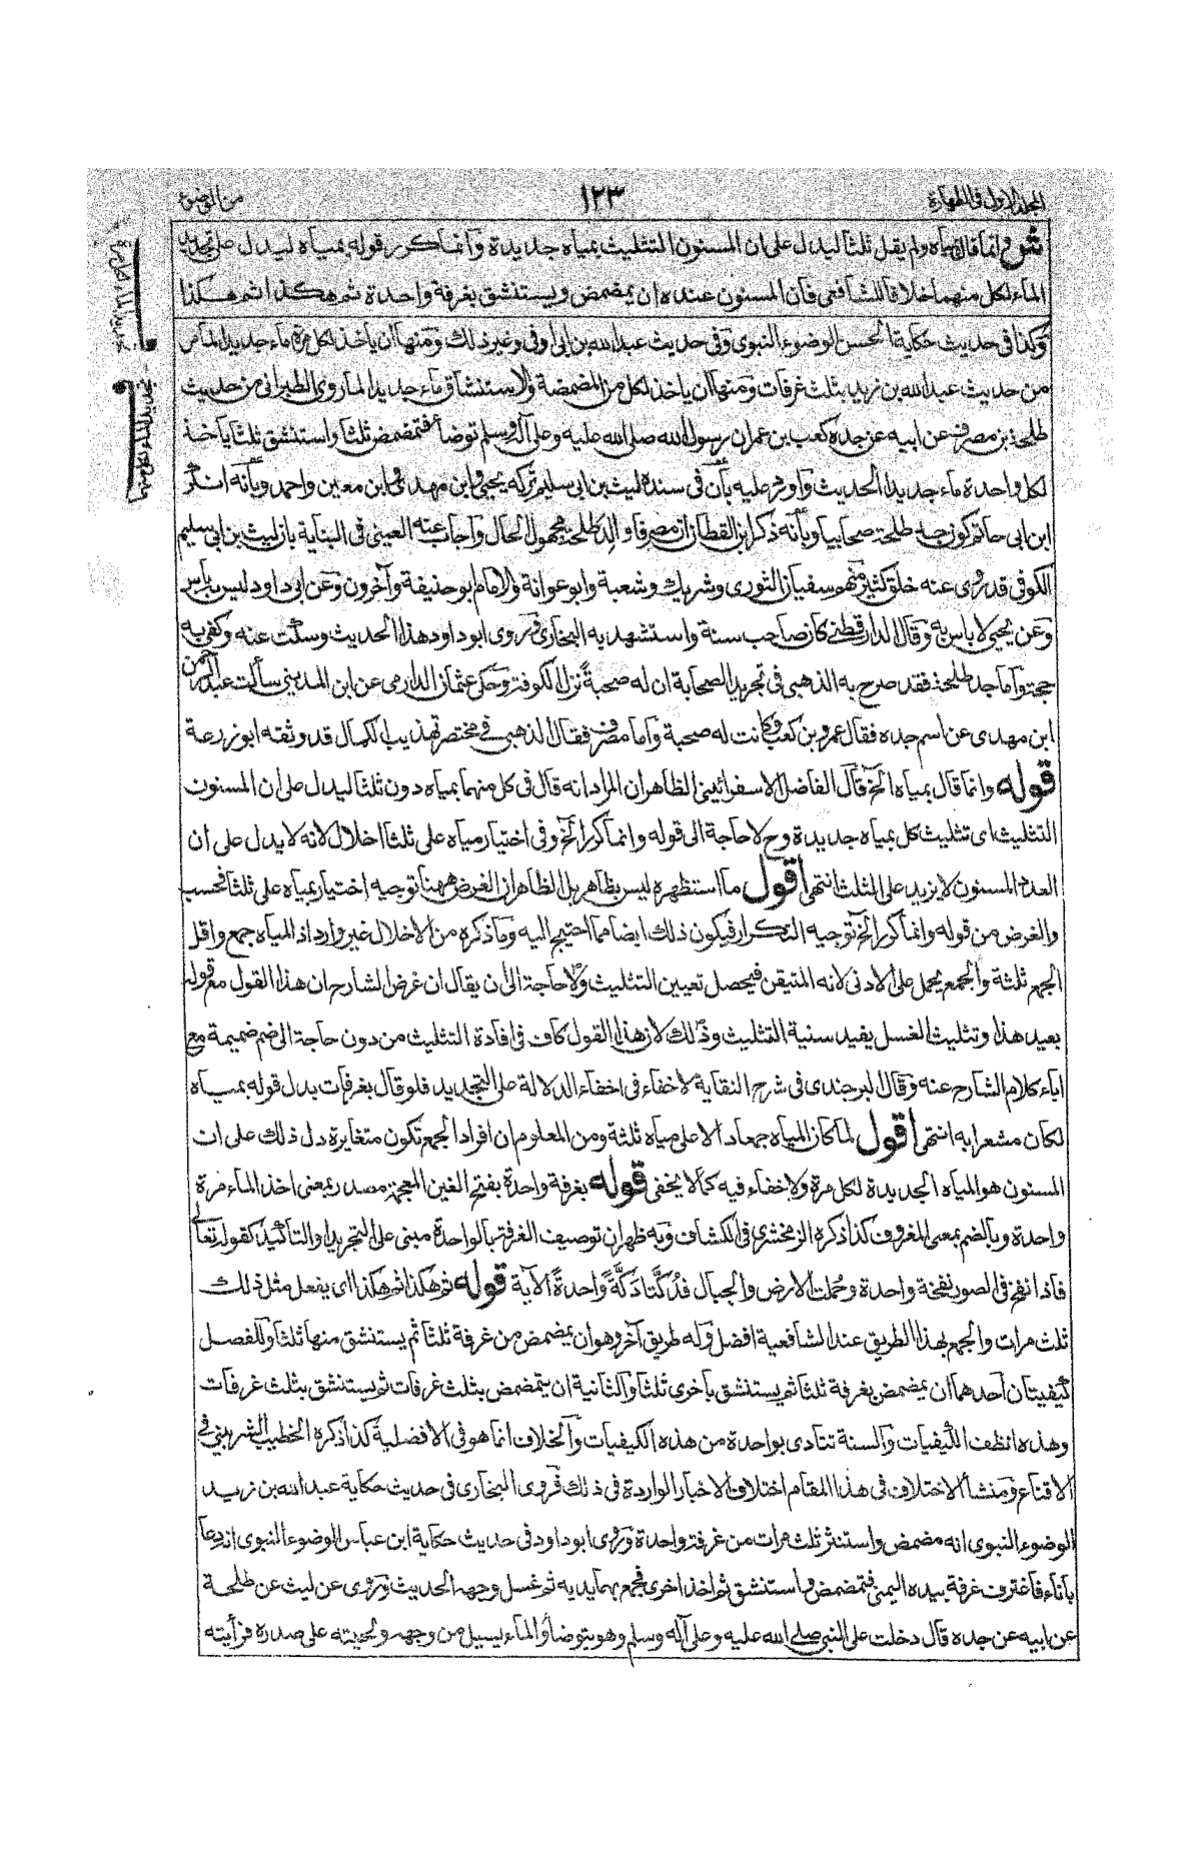 المجلد الاول فى الطهارة ١٢٣ من الوضوء
ش وانما قال بمياه ولم يقل ثلثا ليدل على ان المسنون التثليث بمياه جديدة وانما كرر قوله بمياه ليدل على تجديد
الماء لكل منهما خلافا للشافعى فان المسنون عنده ان يمضمض ويستنشق بغرفة واحدة ثم هكذا ثم هكذا
وكذا فى حديث حكاية الحسن الوضوء النبوى وفى حديث عبد الله بن ابى اوفى وغير ذلك ومنها ان ياخذ لكل مرة ماء جديدا لما مر
من حديث عبد الله بن زيد بثلث غرفات ومنها ان ياخذ لكل من المضمضة والاستنشاق ماء جديدا لما روى الطبرانى من حديث
طلحة بن مصرف عن ابيه عن جده كعب بن عمر ان رسول الله صلى الله عليه وعلى آله وسلم توضأ فتمضمض ثلثا واستنشق ثلثا ياخذ
لكل واحدة ماء جديدا الحديث واورد عليه بان فى سنده ليث بن ابى سليم تركه يحيى وابن مهدى وابن معين واحمد وبانه انكر
ابن ابى حاتم كون جد طلحة صحابيا وبانه ذكر ابن القطان ان مصرفا والد طلحة مجهول الحال واجاب عنه العينى فى البناية بان ليث بن ابى سليم
الكوفى قد روى عنه خلق كثير منهم سفيان الثورى وشريك وشعبة وابو عوانة والامام ابو حنيفة وآخرون وعن ابى داود ليس به باس
وعن يحيى لا باس به وقال الدارقطنى كان صاحب سنة واستشهد به البخارى وروى ابو داود هذا الحديث وسكت عنه وكفى به
حجة واما جد طلحة فقد صرح به الذهبى فى تجريد الصحابة ان له صحبةً نزل الكوفة وحكى عثمان الدارمى عن ابن المدينى سألت عبد الرحمن
ابن مهدى عن اسم جده فقال عمرو بن كعب وكانت له صحبة واما مصرف فقال الذهبى فى مختصر تهذيب الكمال قد وثقه ابو زرعة
قوله وانما قال بمياه الخ قال الفاضل الاسفرائينى الظاهر ان المراد انه قال فى كل منهما بمياه دون ثلثا ليدل على ان المسنون
التثليث اى تثليث كل بمياه جديدة وح لا حاجة الى قوله وانما كرر الخ وفى اختيار مياه على ثلثا اخلال لانه لا يدل على ان
العدد المسنون لا يزيد على الثلث انتهى اقول ما استظهره ليس بظاهر بل الظاهر ان الغرض ههنا توجيه اختيار بمياه على ثلثا فحسب
والغرض من قوله وانما كرر الخ توجيه التكرار فيكون ذلك ايضا مما احتيج اليه وما ذكره من الاخلال غير وارد اذ المياه جمع واقل
الجمع ثلثة والجمع يحمل على الادنى لانه المتيقن فيحصل تعيين التثليث ولا حاجة الى ان يقال ان غرض الشارح ان هذا القول مع قوله
بعيد هذا وتثليث الغسل يفيد سنية التثليث وذلك لان هذا القول كاف فى افادة التثليث من دون حاجة الى ضم ضميمة مع
اباء كلام الشارح عنه وقال البرجندى فى شرح النقاية لا خفاء فى اخفاء الدلالة على التجديد فلو قال بغرفات بدل قوله بمياه
لكان مشعرا به انتهى اقول لما كان المياه جمعا دالا على مياه ثلثة ومن المعلوم ان افراد الجمع تكون متغايرة دل ذلك على ان
المسنون هو المياه الجديدة لكل مرة ولا خفاء فيه كما لا يخفى قوله بغرفة واحدة بفتح الغين المعجمة مصدر بمعنى اخذ الماء مرة
واحدة وبالضم بمعنى المغروف كذا ذكره الزمخشرى فى الكشاف وبه ظهر ان توصيف الغرفة بالواحدة مبنى على التجريد او التأكيد كقوله تعالى
فاذا نفخ فى الصور نفخة واحدة وحُملت الارض والجبال فدُكَّتا دَكَّةً واحدةً الآية قوله ثم هكذا ثم هكذا اى يفعل مثل ذلك
ثلث مرات والجمع بهذا الطريق عند الشافعية افضل وله طريق آخر وهو ان يمضمض من غرفة ثلثا ثم يستنشق منها ثلثا وللفصل
كيفيتان احدهما ان يمضمض بغرفة ثلثا ثم يستنشق باخرى ثلثا والثانية ان يتمضمض بثلث غرفات ثم يستنشق بثلث غرفات
وهذه انظف الكيفيات والسنة تتادى بواحدة من هذه الكيفيات والخلاف انما هو فى الافضلية كذا ذكره الخطيب الشربينى فى
الاقناع ومنشأ الاختلاف فى هذا المقام اختلاف الاخبار الواردة فى ذلك فروى البخارى فى حديث حكاية عبد الله بن زيد
الوضوء النبوى انه مضمض واستنثر ثلث مرات من غرفة واحدة وروى ابو داود فى حديث حكاية ابن عباس الوضوء النبوى انه دعا
باناء فاغترف غرفة بيده اليمنى فتمضمض واستنشق ثم اخذ اخرى فجمع بها يديه ثم غسل وجهه الحديث وروى عن ليث عن طلحة
عن ابيه عن جده قال دخلت على النبى صلى الله عليه وعلى آله وسلم وهو يتوضأ والماء يسيل من وجهه ولحيته على صدره فرأيته